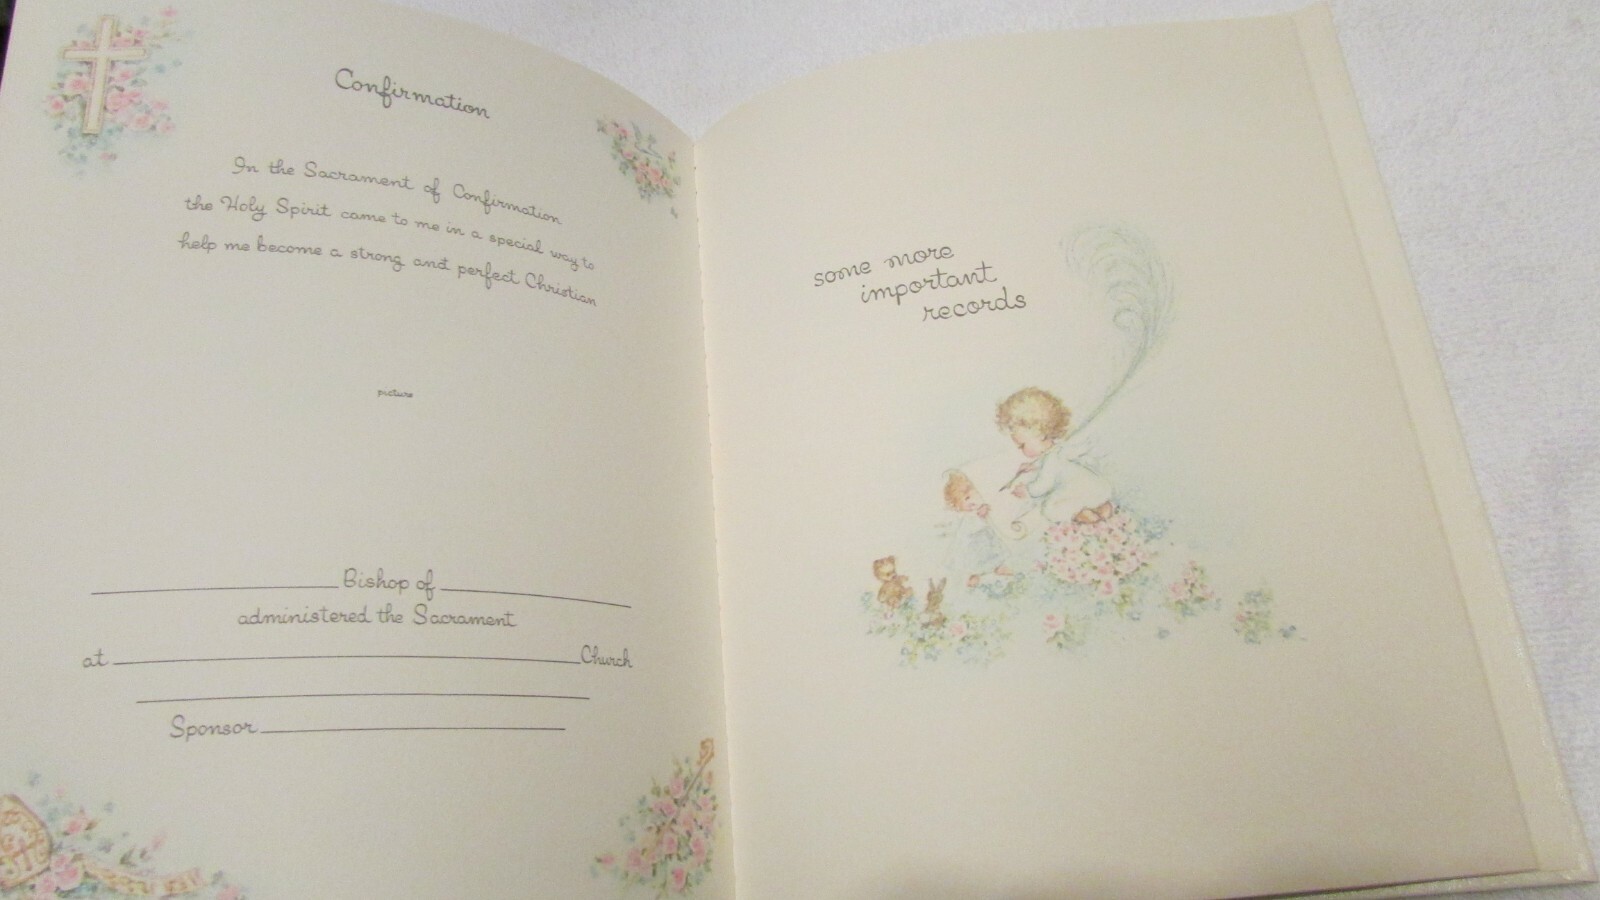 Confirmation
In the Sacrament of Confirmation
the Holy Spirit came to me in a special way to
help me become a strong and perfect Christian
picture
Bishop of
administered the Sacrament
at Church
Sponsor
some more
important
records